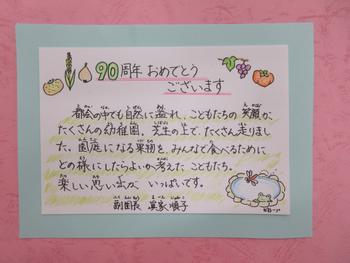 90周年おめでとう
ございます
都会の中でも自然に溢れ、こどもたちの笑顔が
たくさんの幼稚園。芝生の上で、たくさん走りまし
た。園庭になる果物を、みんなで食べるために
どの様にしたらよいか考えたこどもたち。
楽しい思い出が、いっぱいです。
副園長 真家 順子